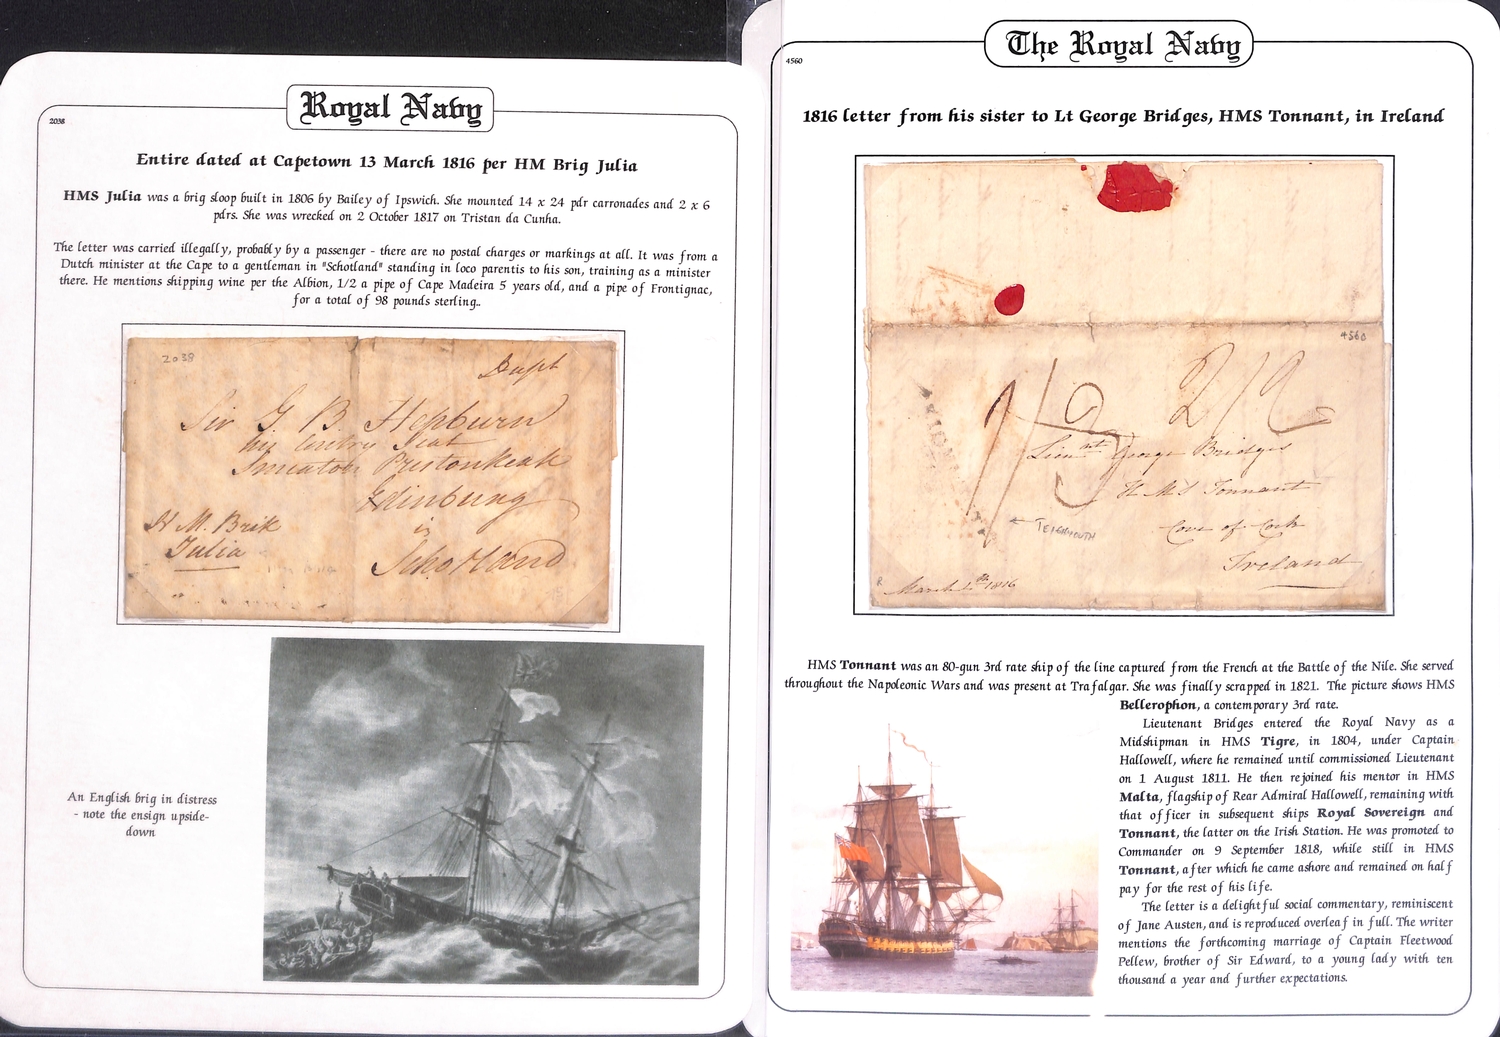 Royal Navy
2038
Entire dated at Capetown 13 March 1816 per HM Brig Julia
HMS Julia was a brig sloop built in 1806 by Bailey of Ipswich. She mounted 14 x 24 pdr carronades and 2 x 6
pdrs. She was wrecked on 2 October 1817 on Tristan da Cunha.
The letter was carried illegally, probably by a passenger - there are no postal charges or markings at all. It was from a
Dutch minister at the Cape to a gentleman in "Schotland" standing in loco parentis to his son, training as a minister
there. He mentions shipping wine per the Albion, 1/2 a pipe of Cape Madeira 5 years old, and a pipe of Frontignac,
for a total of 98 pounds sterling..
2038
Dupl
Sir G. B. Hepburn
his Centry Seat
Smeaton Prestonkeak
Edinburg
in
Schotland
H. M. Brik
Julia
An English brig in distress
- note the ensign upside-
down
The Royal Navy
4560
1816 letter from his sister to Lt George Bridges, HMS Tonnant, in Ireland
4560
1/9 2/2
Lieunt George Bridges
H M S Tonnant
Cove of Cork
Ireland
← TEIGNMOUTH
March 1816
HMS Tonnant was an 80-gun 3rd rate ship of the line captured from the French at the Battle of the Nile. She served
throughout the Napoleonic Wars and was present at Trafalgar. She was finally scrapped in 1821. The picture shows HMS
Bellerophon, a contemporary 3rd rate.
Lieutenant Bridges entered the Royal Navy as a
Midshipman in HMS Tigre, in 1804, under Captain
Hallowell, where he remained until commissioned Lieutenant
on 1 August 1811. He then rejoined his mentor in HMS
Malta, flagship of Rear Admiral Hallowell, remaining with
that officer in subsequent ships Royal Sovereign and
Tonnant, the latter on the Irish Station. He was promoted to
Commander on 9 September 1818, while still in HMS
Tonnant, after which he came ashore and remained on half
pay for the rest of his life.
The letter is a delightful social commentary, reminiscent
of Jane Austen, and is reproduced overleaf in full. The writer
mentions the forthcoming marriage of Captain Fleetwood
Pellew, brother of Sir Edward, to a young lady with ten
thousand a year and further expectations.